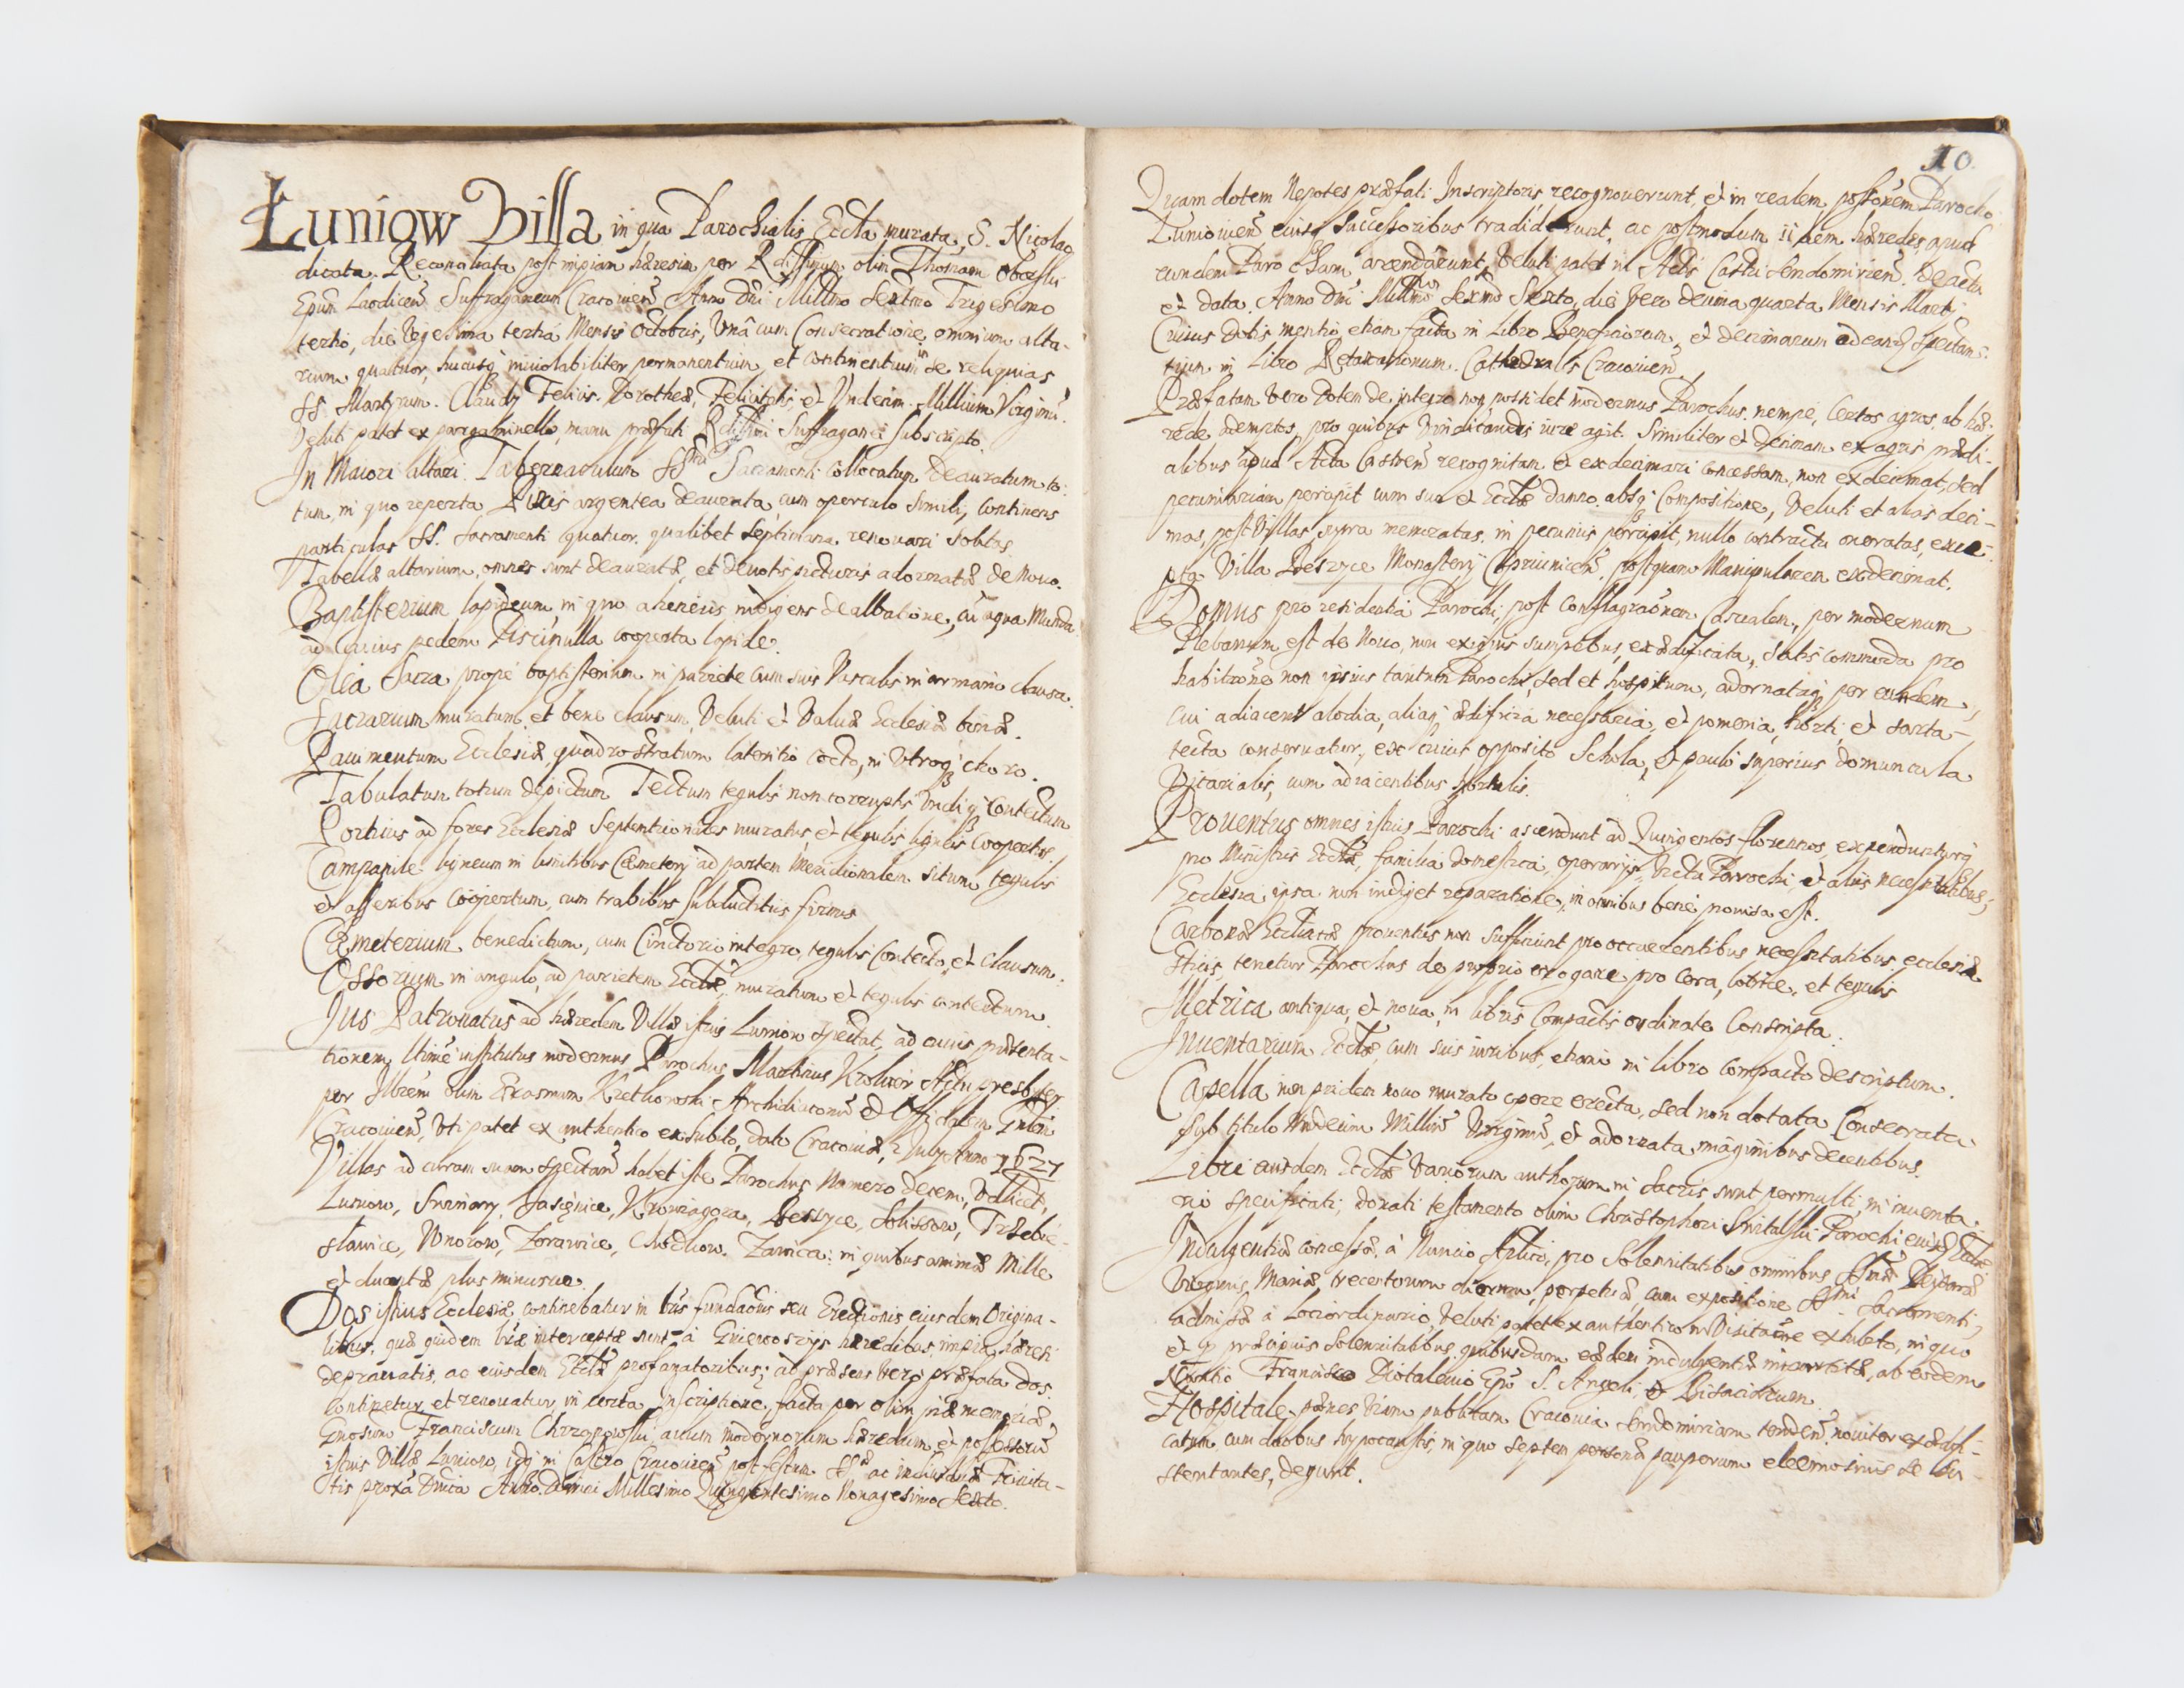 Łuniow Villa in qua Parochialis Eccła murata, S. Nicolao
dicata. Reconciliata post impiam hæresim per Rdissimum olim Thomam
Epum Laodicen Suffraganeum Cracouien Anno Dni Millmo Sextmo Trigesimo
tertio, die Vigesima tertia Mensis Octobris, Vnâ cum Consecratione omnium alta-
rium quatuor, hucusq inuiolabiliter permanentium, et continentium in se reliquias
SS. Martyrum. Claudy Felicis. Dorotheæ, Felicitatis, et Vndecim Millium Virginu.
Veluti patet ex pargaminello, manu præfati Rdissimi Suffraganei subscripto.
In Maiori altari. Tabernaculum SSmi Sacramenti collocatum deauratum to-
tum, in quo reperta Pixis argentea deaurata, cum operculo simili, continens
particulas SS. Sacramenti quatuor. qualibet septimana renouari solitas.
Tabellæ altarium, omnes sunt deauratæ, et deuotis picturis adornatæ de Nouo.
Baptisterium lapideum in quo aheneus indigens dealbatione, cũ aqua Munda.
ad Cuius pedem Piscinulla cooperta lapide.
Olea Sacra propè baptisterium in pariete cum suis Vasculis in armario clausa.
Sacrarium muratum, et bene clausum, Veluti et Valuæ Ecclesiæ bonæ.
Pauimentum Ecclesiæ quadro stratum lateritio cocto, in Vtroq choro.
Tabulatum totum depictum Tectum tegulis non corruptis Vndiq Contectum
Porticus ad fores Ecclesiæ Septentrionales muratus, et tegulis ligneis coopertus.
Campanile ligneum in limitibus Cæmetery ad partem Meridionalem situm tegulis
et asseribus coopertum, cum trabibus subductitiis firmis
Cæmeterium benedictum, cum Cinctorio integro, tegulis Contecto, et clausum.
Ossorium in angulo, ad parietem Ecclæ, muratum et tegulis contectum.
Jus Patronatus ad hæredem Villæ istius Luniow spectat, ad cuius præsenta-
tionem Vltimè institutus modernus Parochus Martinus Actu presbyter
per Illrem olim Erasmum Krethowski Archidiaconũ et Officialem Gnlem
Cracouien, Vti patet ex authentico exhibito, dato Cracouiæ, 2 July Anno 1627
Villas ad curam suam spectan habet iste Parochus Numero decem, Videlicet,
Luniow, Sminary, Jasięnice, Beszyce, Solissow, Trzebie-
slawice, Wnorow, Zorawice, Chodkow. Zawica: in quibus animæ Mille
et ducentæ plus minusue.
Dos istius Ecclesiæ continebatur in lris fundaois seu Erectionis eiusdem Origina-
libus, quæ quidem lræ interceptæ sunt à Gniewoszijs hæredibus, impia hæresi
deprauatis, ac eiusdem Ecclæ profanatoribus; ad præsens vero præfata dos.
Continetur, et renouatur, in certa inscriptione, facta per olim piæ memoriæ,
Gnosum Franciscum Chrząstowski auum modernorum hæredum, et possessorũ
istius Villæ Luniow, idq in Castro Cracouien post festum SSæ ac indiuiduæ Trinita-
tis proxa Dnica Anno Domini Millesimo Quingentesimo Nonagesimo Sexto.
10
Quam dotem Nepotes præfati Inscriptoris, recognouerunt, et in realem possonem Parocho
Luniouien eiusq successoribus tradiderunt, ac postmodum iidem hæredes, apud
eundem Parochum arendarunt, Veluti patet in Actis Castri Sendomirien. De actu
et data. Anno Dni Millmo Sexmo Sexto, die Vero decima quarta Mensis Marty.
Cuius dotis mentio, etiam facta in Libro Beneficiorum, et decimarum ad eandẽ spectan-
tium in Libro Retaxationum. Cathedralis Cracouien
Præfatam Vero Dotem de integro non possidet modernus Parochus, nempè, Certos agros, ab hæ-
rede ademptos, pro quibus Vindicandis iure agit. Similiter et decimam ex agris prædi-
alibus apud Acta Castren recognitam et exdecimari concessam, non exdecimat, sed
pecuniariam percipit cum suo et Ecclæ damno, absq Compositione, Veluti et alias deci-
mas, post Villas supra memoratas, in pecuniis percipit, nullo contractu oneratas, exce-
pta Villa Beszyce Monastery Copriunicen, postquam Manipularem exdecimat.
Domus pro residentia Parochi, post Conflagraonem Casualem, per modernum
Plebanum est de Nouo, non exiguis sumptibus, exædificata, Satis commoda pro
habitaone non ipsius tantum Parochi, sed et hospitum, adornataq per eundem,
Cui adiacent alodia, aliaq ædificia necessaria, et pomeria, horti, et sarta-
tecta conseruatur, ex cuius opposito Schola, et paulò superius domuncula
Vicarialis, cum adiacentibus hortulis.
Prouentus omnes istius Parochi ascendunt ad Quingentos florenos, expendunturq
pro Ministris Ecclæ, familia domestica, operarijs, Victu Parochi, et aliis necessitatibus;
Ecclesia ipsa non indiget reparatione, in omnibus benè prouisa est.
Carbonæ Eccliæ prouentus non sufficiunt pro occurrentibus necessitatibus ecclesia
sticis, tenetur Parochus de proprio erogare pro Cera, lotrice, et tegulis
Metrica antiqua, et noua, in libris Compactis ordinate Conscripta.
Inuentarium Ecclæ, cum suis iuribus, etiam in libro compacto descriptum.
Capella non pridem nouo murato opere erecta, sed non dotata Consecrata
sub titulo Vndecim Milliũ Virginũ, et adornata imaginibus decentibus.
Libri eiusdem Ecclæ Variorum authorum in sacris sunt permulti, in inuenta-
rio specificati, donati testamento olim Christophori Parochi eiusdẽ Ecclæ
Indulgentiæ concessæ, à Nuncio Aplico, pro Solennitatibus omnibus Beatæ
Virginis Mariæ, trecentorum dierum, perpetuæ, cum expositione SSmi Sacramenti,
admissæ à Lociordinario, Veluti patet ex authentico in Visitaone exhibito, in quo
et pro præcipuis Solennitatibus, quibusdam eædem indulgentiæ, ab eodem
Nuntio Francisco Diotaleuio Epo S. Angeli, et Bisaciarum.
Hospitale, penes Viam publicam Cracouia Sendomiriam tenden, nouiter exædifi-
catum, cum duobus hypocaustis, in quo septem personæ pauperum eleemosinis se su-
stentantes, degunt.